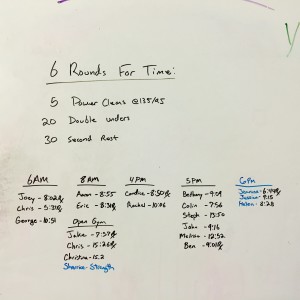 6 Rounds For Time:
5 Power Cleans @135/95
20 Double unders
30 Second Rest
6AM
Joey - 8:02
Chris - 5:31
George - 10:51
8AM
Aaron - 8:55
Eric - 8:31
Open Gym
Jake - 7:57
Chris - 15:26
Christina - 15.2
Strength
4PM
Candice - 8:50
Rachel - 10:06
5PM
Bethany - 9:09
Colin - 7:56
Steph - 13:50
John - 9:16
Melissa - 12:52
Ben - 9:01
6PM
Joanna
Jessica - 9:15
Helen - 8:28